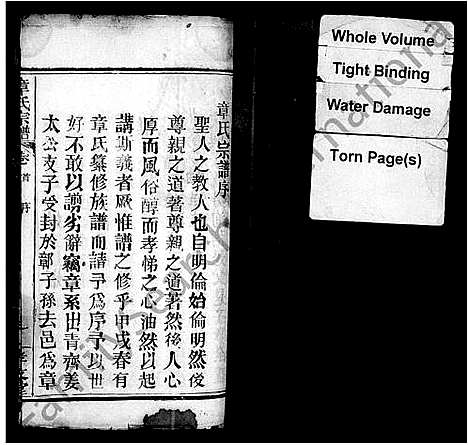 章氏宗譜序
聖人之教人也自明倫始倫明然後
尊親之道著尊親之道著然後人心
厚而風俗醇而孝悌之心油然以起
講斯義者厥惟譜之修乎甲戌春有
章氏纂修族譜而請予爲序予以世
好不敢以譾劣辭竊章系出青齊姜
太公支子受封於鄣子孫去邑爲章
章氏宗譜 卷首
Whole Volume
Tight Binding
Water Damage
Torn Page(s)